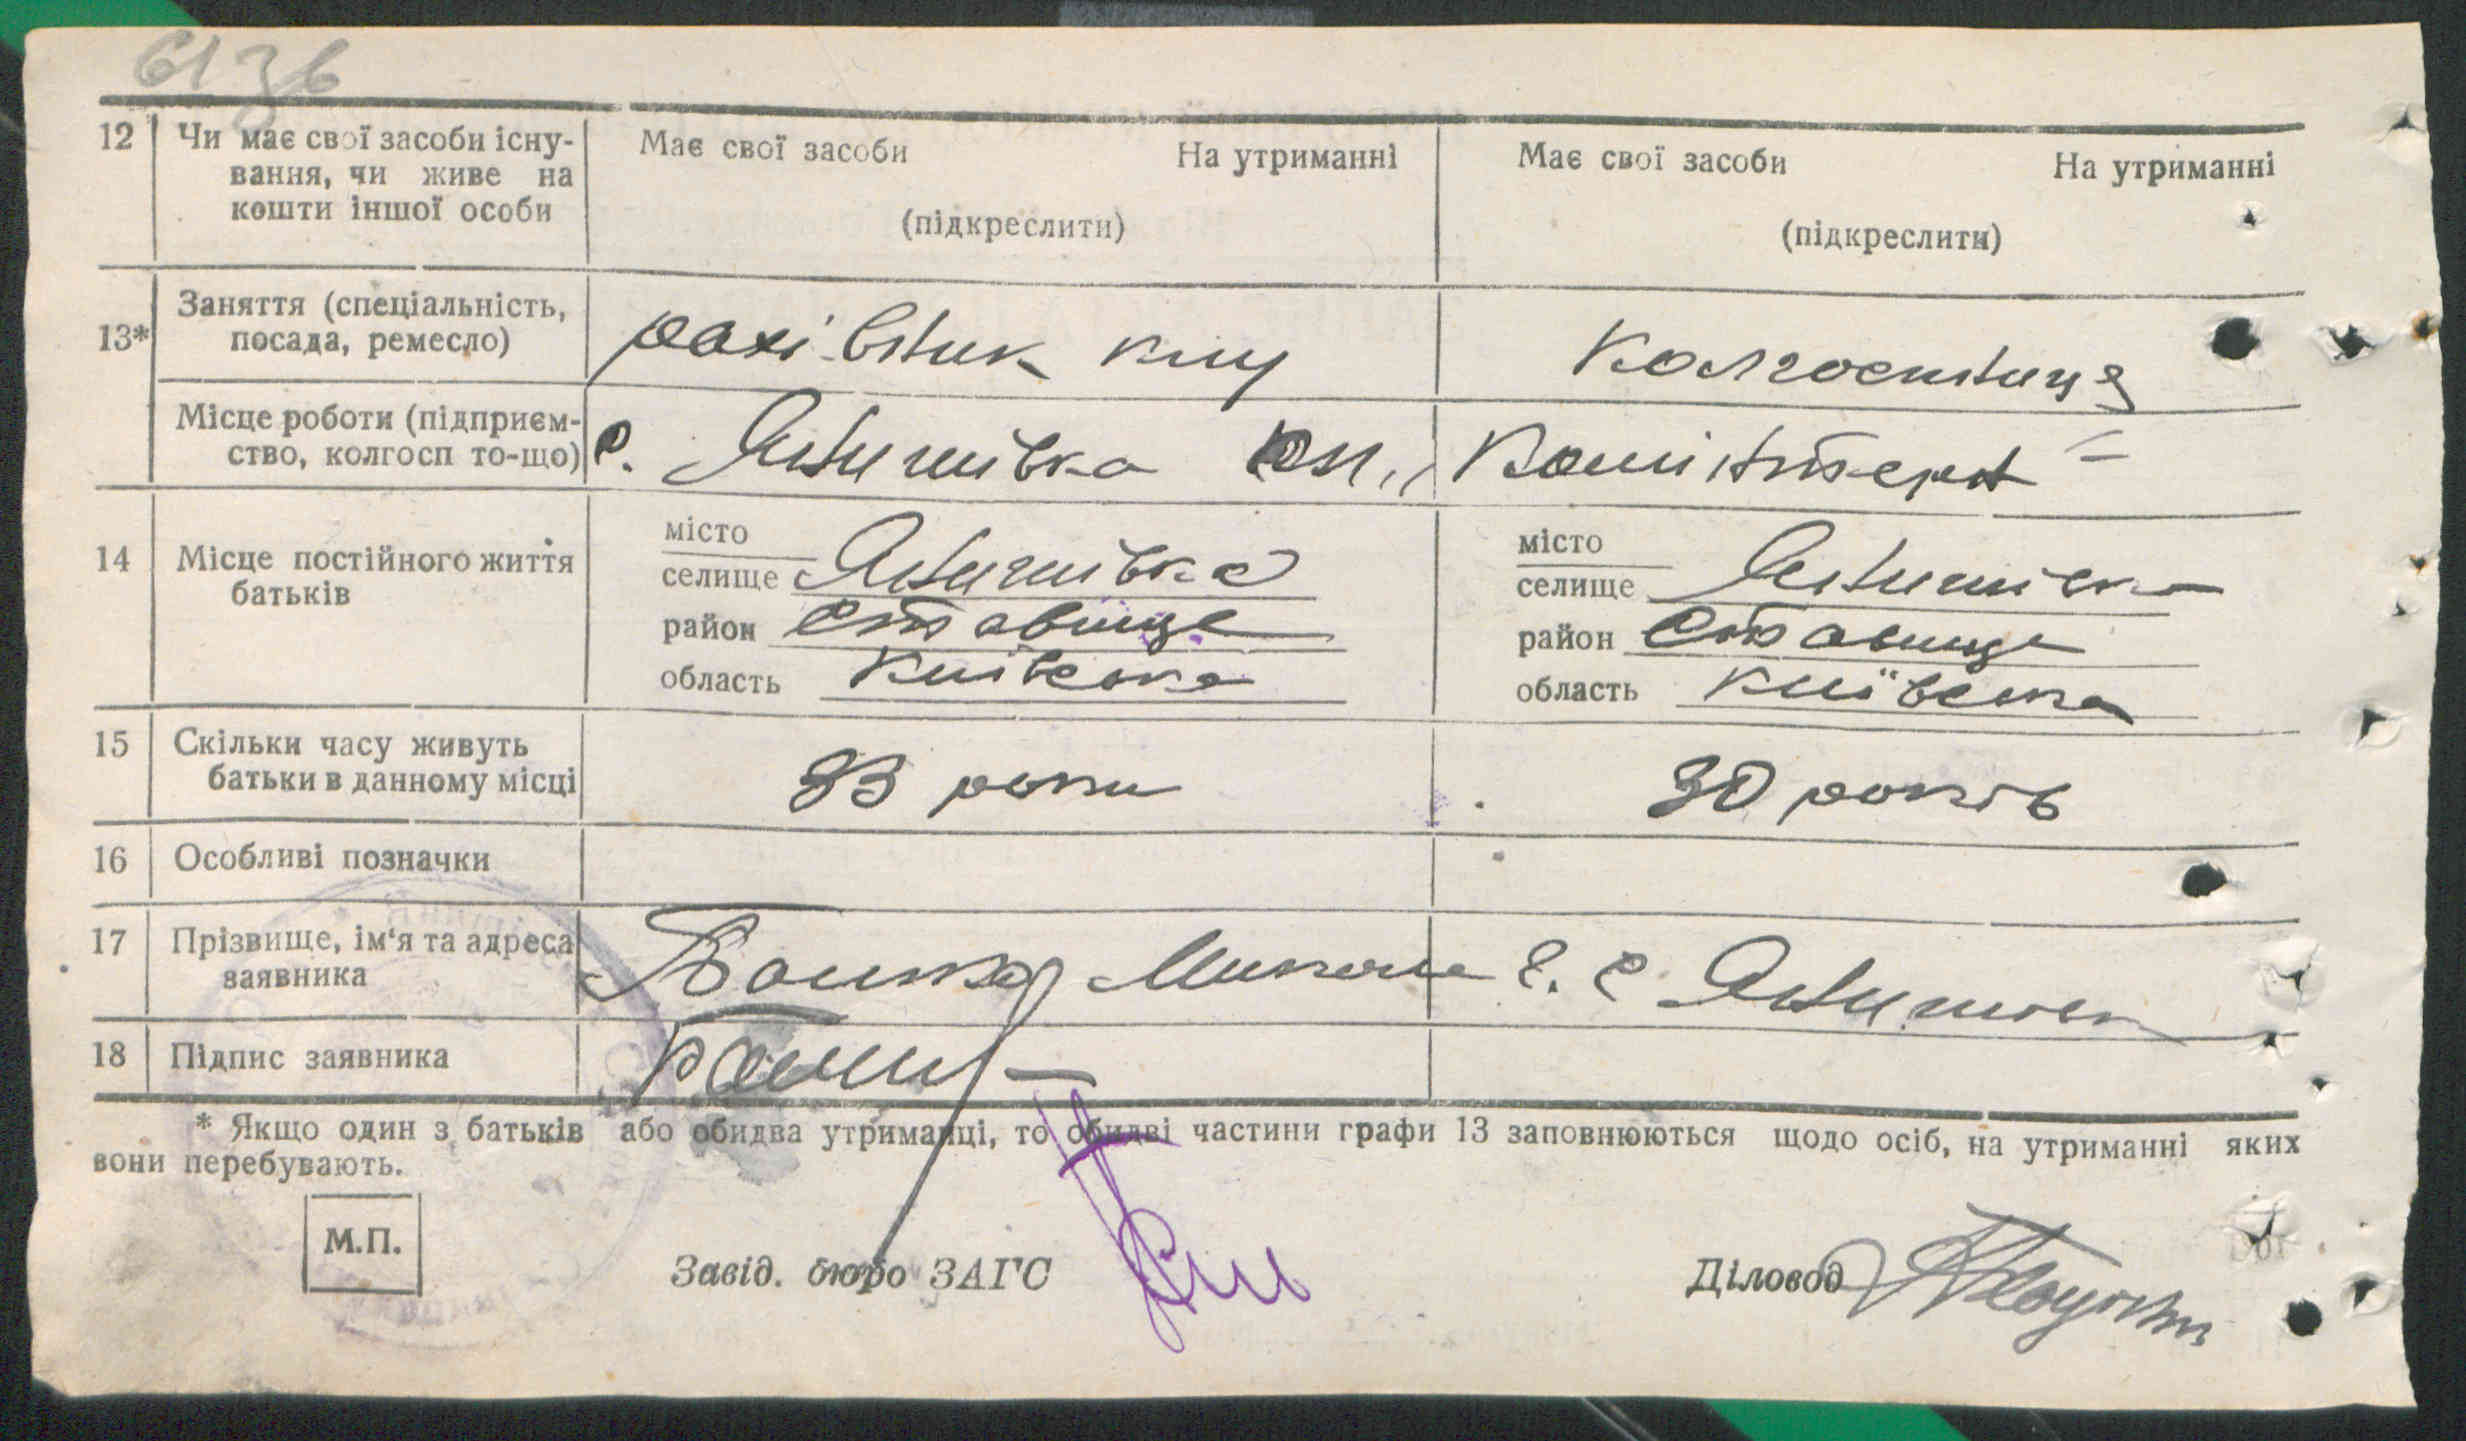 6136
12 Чи має свої засоби існу- Має свої засоби На утриманні Має свої засоби На утриманні
вання, чи живе на
кошти іншої особи (підкреслити) (підкреслити)
13* Заняття (спеціальність,
посада, ремесло) рахівник Колгоспниця
Місце роботи (підприєм-
ство, колгосп то-що) с. Янишівка Комінтерн
14 Місце постійного життя
батьків
місто місто
селище Янишівка селище Янишівка
район Ставище район Ставище
область Київська область Київська
15 Скільки часу живуть
батьки в данному місці 33 роки 30 років
16 Особливі позначки
17 Прізвище, ім‘я та адреса
заявника Микола с. Янишівк
18 Підпис заявника
* Якщо один з батьків або обидва утриманці, то обидві частини графи 13 заповнюються щодо осіб, на утриманні яких
вони перебувають.
М.П.
Завід. бюро ЗАГС Діловод